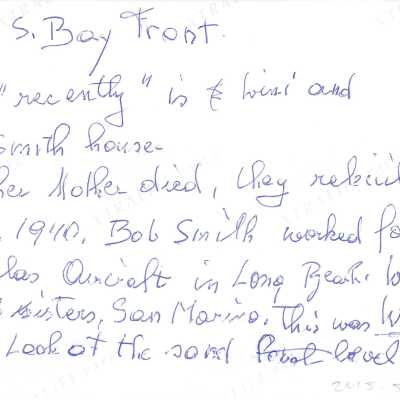 S. Bay Front.
"recently" is & and
Smith house-
her Mother died, they rebuilt
1940. Bob Smith worked fo
las Aircraft in Long Beach.
sisters, San Marino. This was
Look at the sand level
2015.5